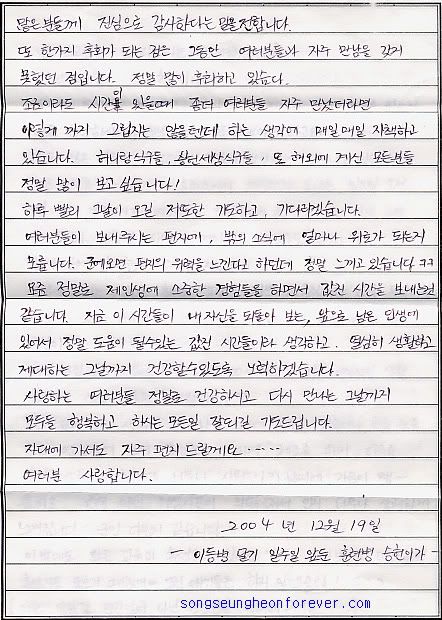 많은분들께 진심으로 감사하다는 말을 전합니다.
또 한가지 후회가 되는 점은 그동안 여러분들과 자주 만남을 갖지
못했던 점입니다. 정말 많이 후회하고 있습니다.
조금이라도 시간이 있을때 좀더 여러분들 자주 만났더라면
이렇게 까지 그립지는 않을텐데 하는 생각에 매일매일 자책하고
있습니다. 허니랑식구들, 승헌세상식구들, 또 해외에 계신 모든분들
정말 많이 보고 싶습니다!
하루 빨리 그날이 오길 저또한 기도하고, 기다리겠습니다.
여러분들이 보내주시는 편지에, 밖의 소식에 얼마나 위로가 되는지
모릅니다. 군에오면 편지의 위력을 느낀다고 하던데 정말 느끼고 있습니다 ㅋㅋ
요즘 정말로 제인생에 소중한 경험들을 하면서 값진 시간을 보내는것
같습니다. 지금 이 시간들이 내 자신을 되돌아 보는, 앞으로 남은 인생에
있어서 정말 도움이 될수있는 값진 시간들이라 생각하고. 열심히 생활하고
제대하는 그날까지 건강할수있도록 노력하겠습니다.
사랑하는 여러분들 정말로 건강하시고 다시 만나는 그날까지
모두들 행복하고 하시는 모든일 잘되길 기도드립니다.
자대에 가서도 자주 편지 드릴께요.....
여러분 사랑합니다.
2004 년 12월 19일
- 이등병 달기 일주일 앞둔 훈련병 승헌이가 -
songseungheonforever.com